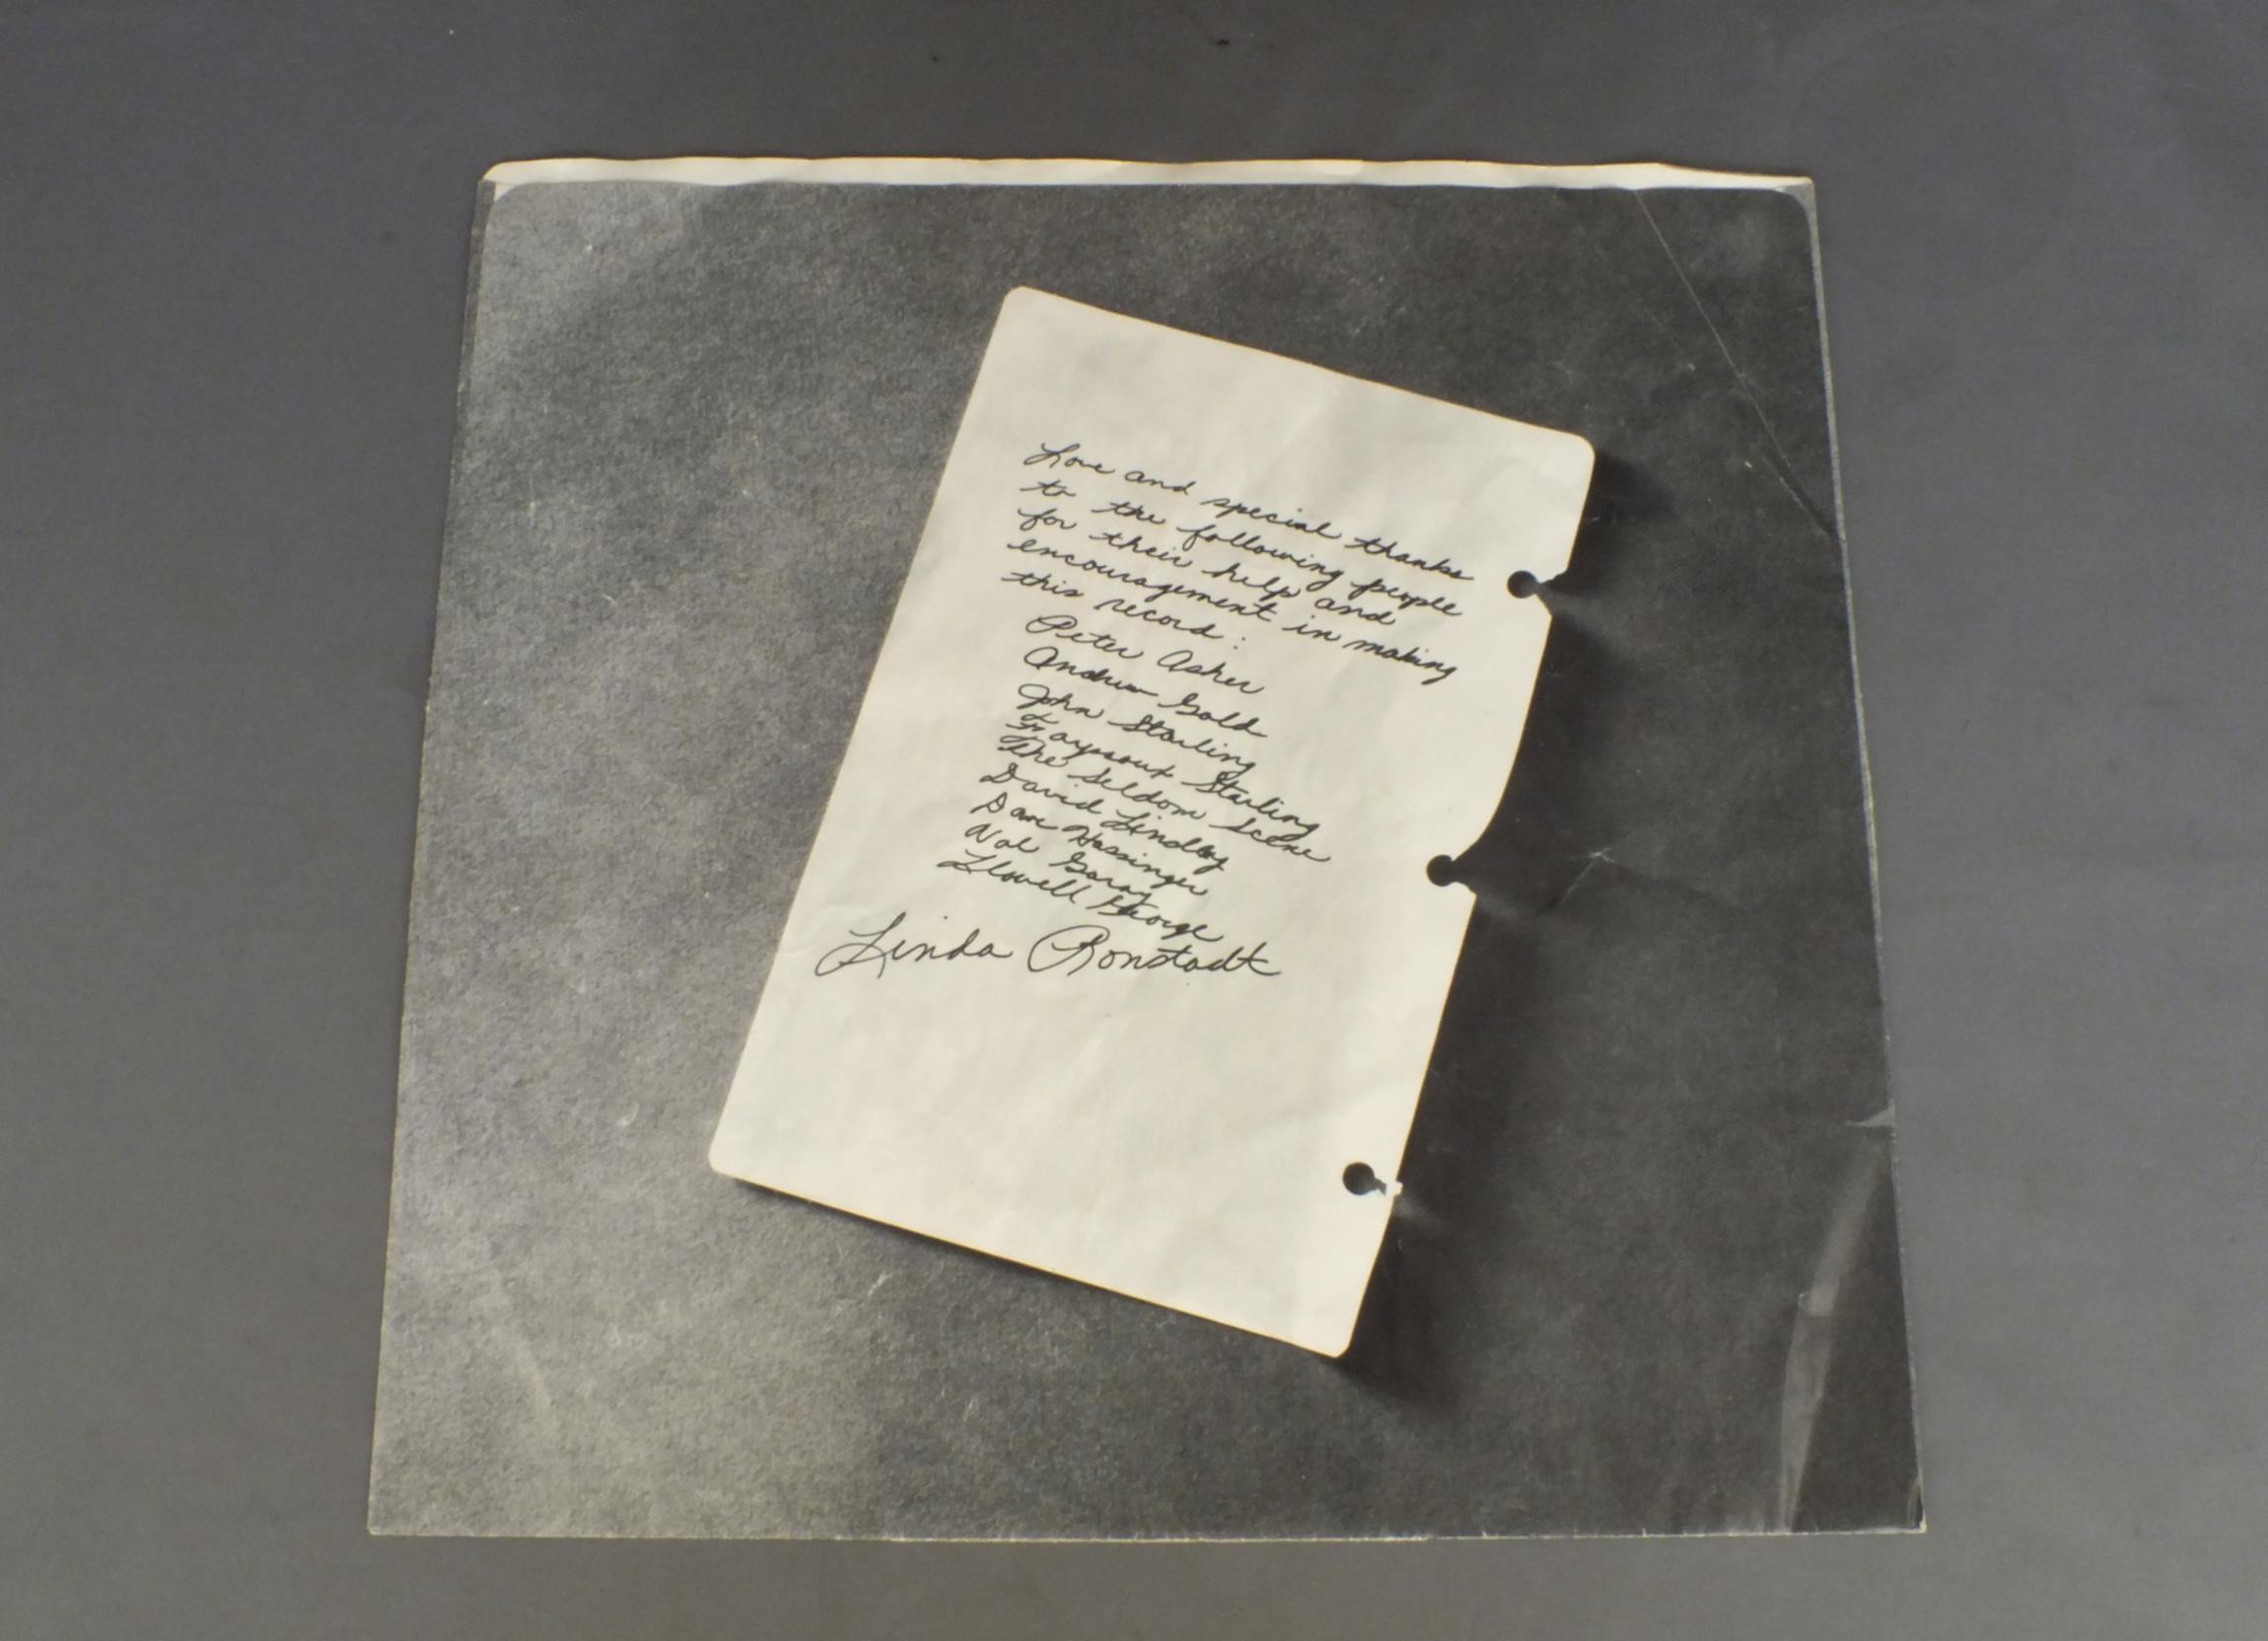 Love and special thanks
to the following people
for their help and
encouragement in making
this record:
Peter Asher
Andrew Gold
John Starling
Fayssoux Starling
The Seldom Scene
David Lindley
Dave Hassinger
Val Garay
Llowell George
Linda Ronstadt